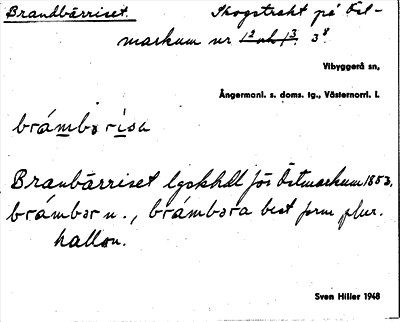 Brandbärriset. Skogstrakt på Öst-
markum nr 12 och 13. 3⁸
Vibyggerå sn,
Ångermanl. s. doms. tg., Västernorrl. l.
brámbərisa
Branbärriset lgskhdl för Östmarkum 1883,
brámbər n., brámbəra best form plur.
hallon.
Sven Hiller 1948